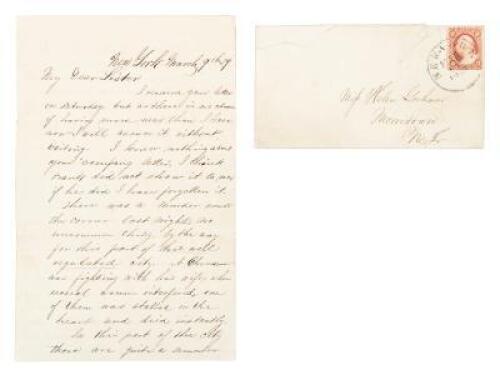 New York March 9th 59
My Dear Sister
I receive your letter
on Saturday but as there is no chance
of having more news than I have
now I will answer it without
waiting. I knew nothing about
your company letter, I think
did not show it to me
if he did I have forgotten it.
There was a murder round
the corner last night, no
uncommon thing by the way
for this part of this well
regulated city. A Chinaman
was fighting with his wife, when
several interfered, one
of them was stabed in the
heart and died instantly.
In this part of the city
there are quite a number
NEW
Miss Helen
Morristown
N. Jr